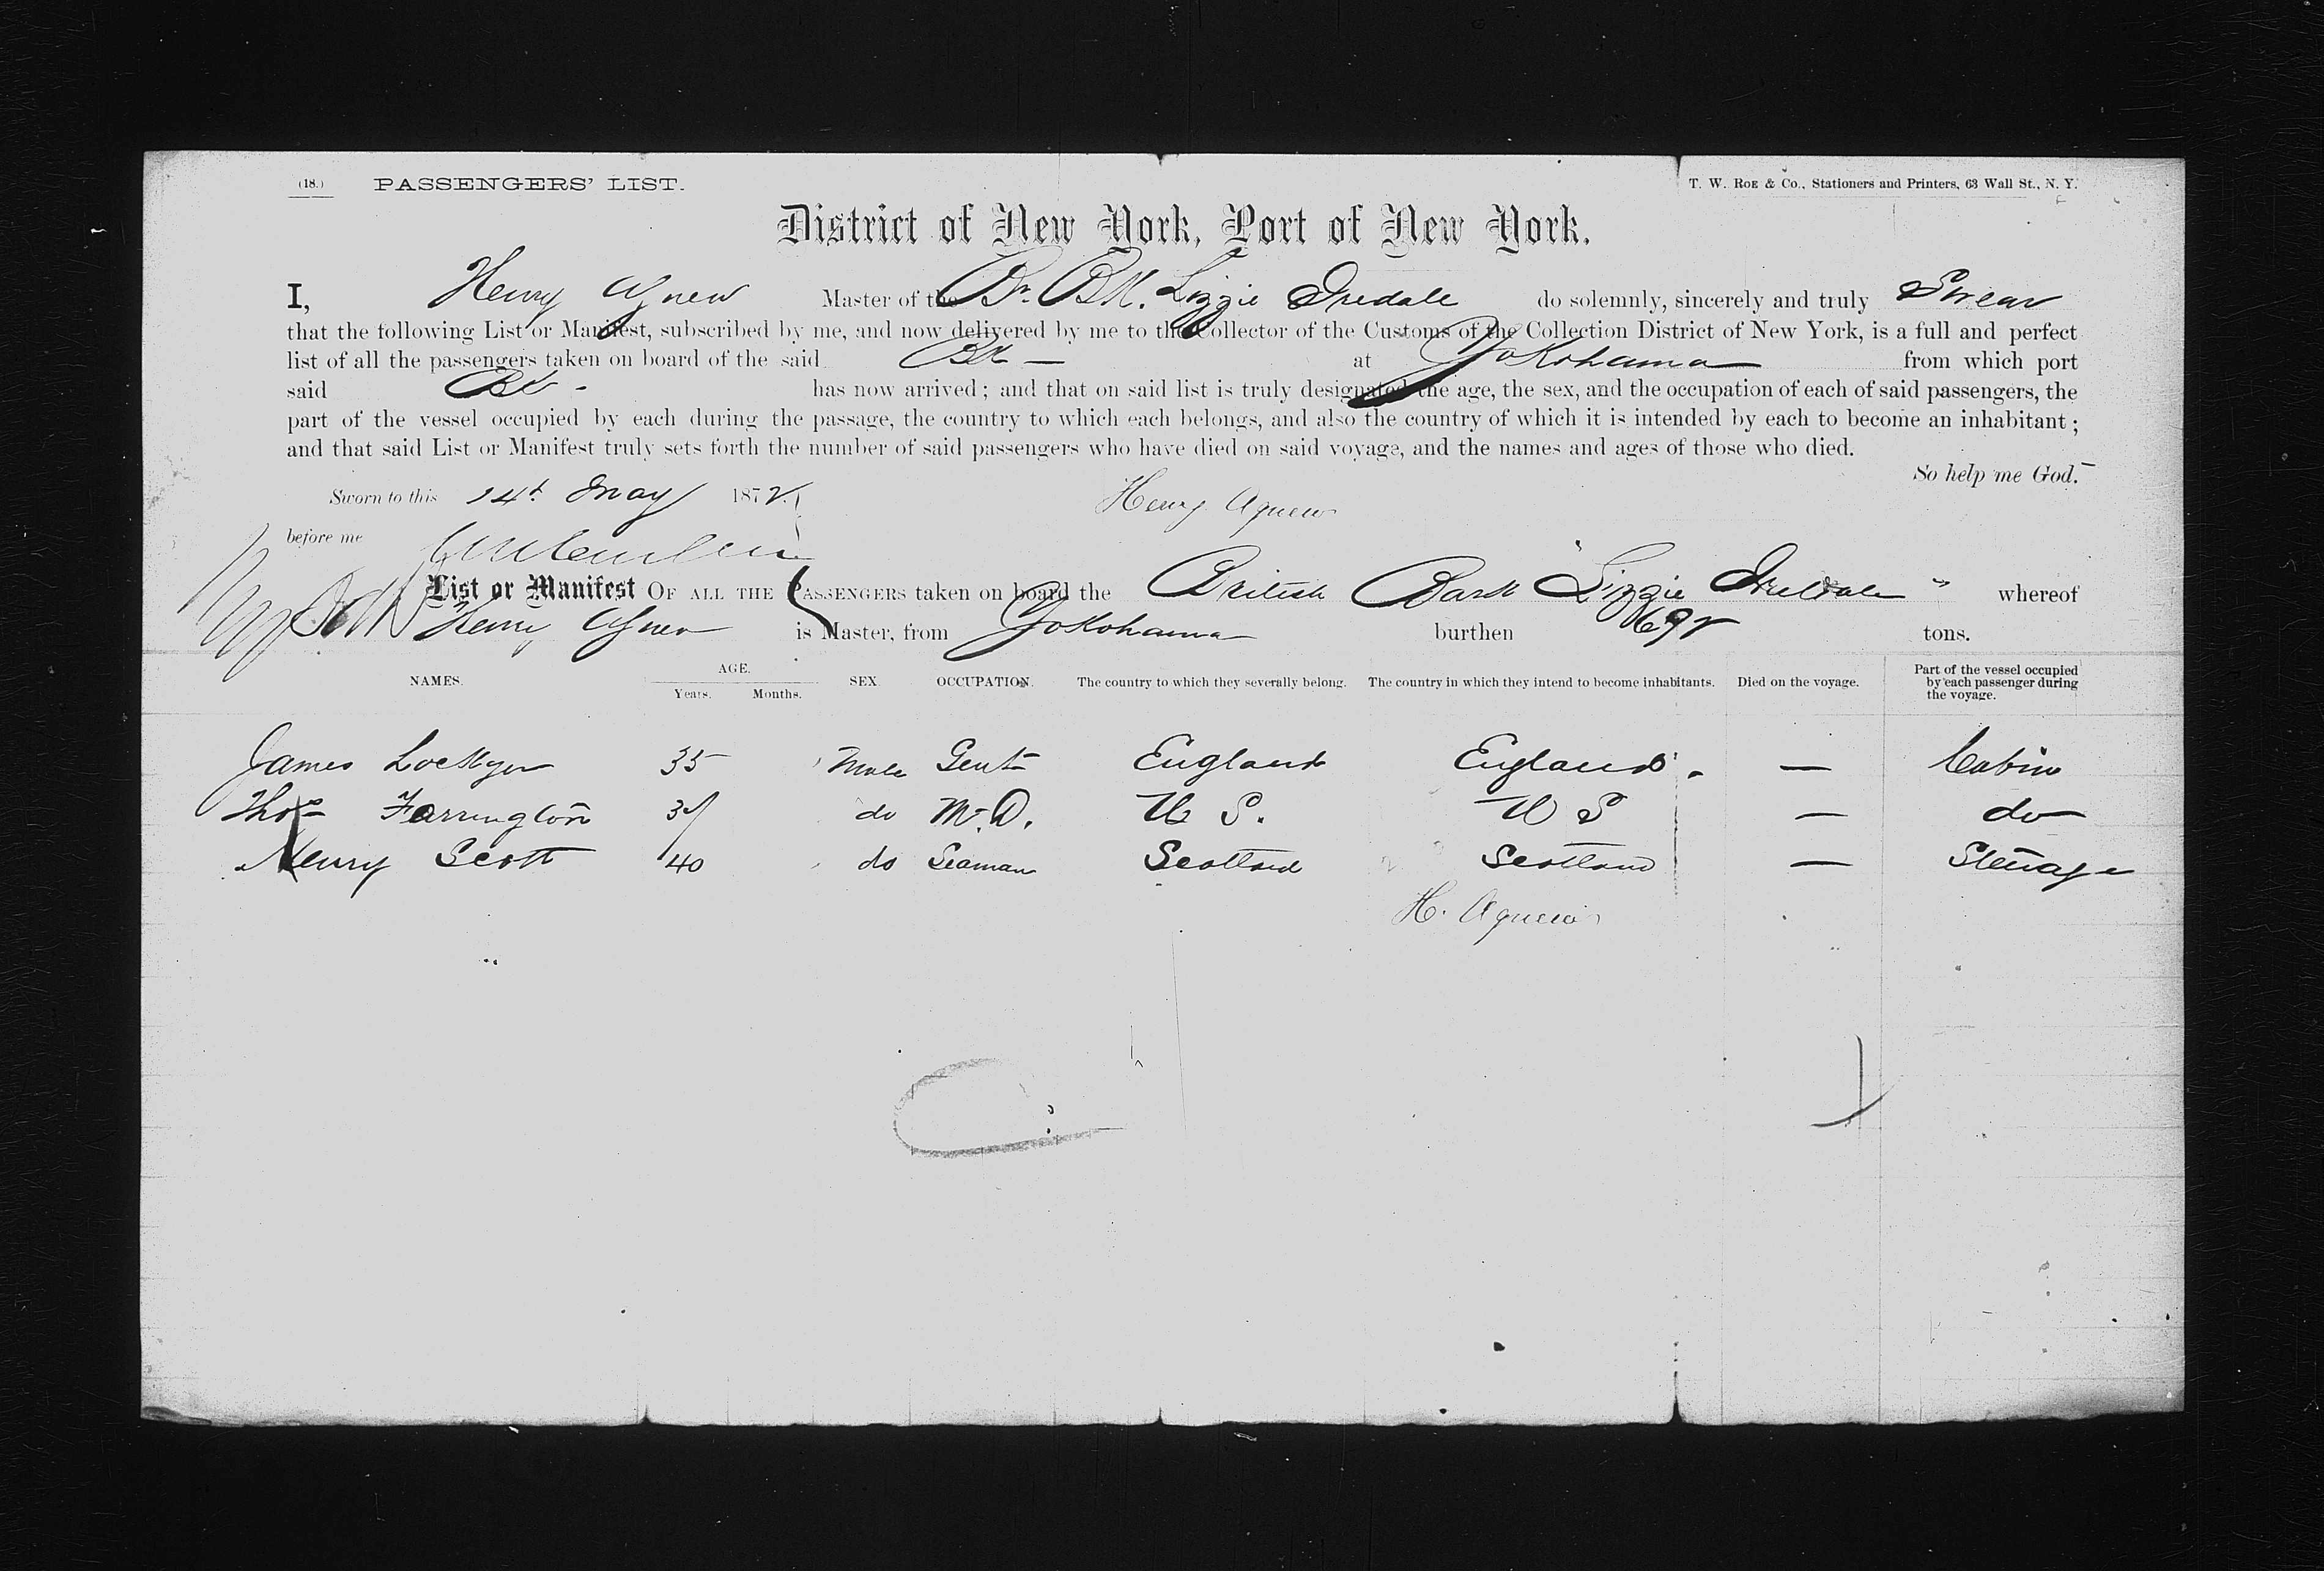 (18.) PASSENGERS' LIST. T. W. ROE & Co., Stationers and Printers, 63 Wall St., N. Y.
District of New York, Port of New York.
I, Henry Agnew Master of the Br. Bk. Lizzie Iredale do solemnly, sincerely and truly Swear
that the following List or Manifest, subscribed by me, and now delivered by me to the Collector of the Customs of the Collection District of New York, is a full and perfect
list of all the passengers taken on board of the said Bk — at Yokohama from which port
said Bk - has now arrived; and that on said list is truly designated the age, the sex, and the occupation of each of said passengers, the
part of the vessel occupied by each during the passage, the country to which each belongs, and also the country of which it is intended by each to become an inhabitant;
and that said List or Manifest truly sets forth the number of said passengers who have died on said voyage, and the names and ages of those who died.
So help me God.
Sworn to this 14th May 1872 Henry Agnew
before me
List or Manifest OF ALL THE PASSENGERS taken on board the British Bark "Lizzie Iredale" whereof
Henry Agnew is Master, from Yokohama burthen 692 tons.
NAMES. AGE. Years. Months. SEX. OCCUPATION. The country to which they severally belong. The country in which they intend to become inhabitants. Died on the voyage. Part of the vessel occupied by each passenger during the voyage.
James Lockyer 35 Male Gent England England — Cabin
Thos Farrington do M.D. U S. U S — do
Henry Scott 40 do Seaman Scotland Scotland — Steerage
H. Agnew